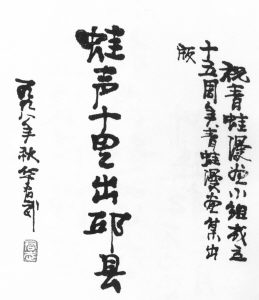 祝青蛙漫画小组成立
十五周年青蛙漫画集出
版
蛙声十里出邱县
一九九八年秋华君武